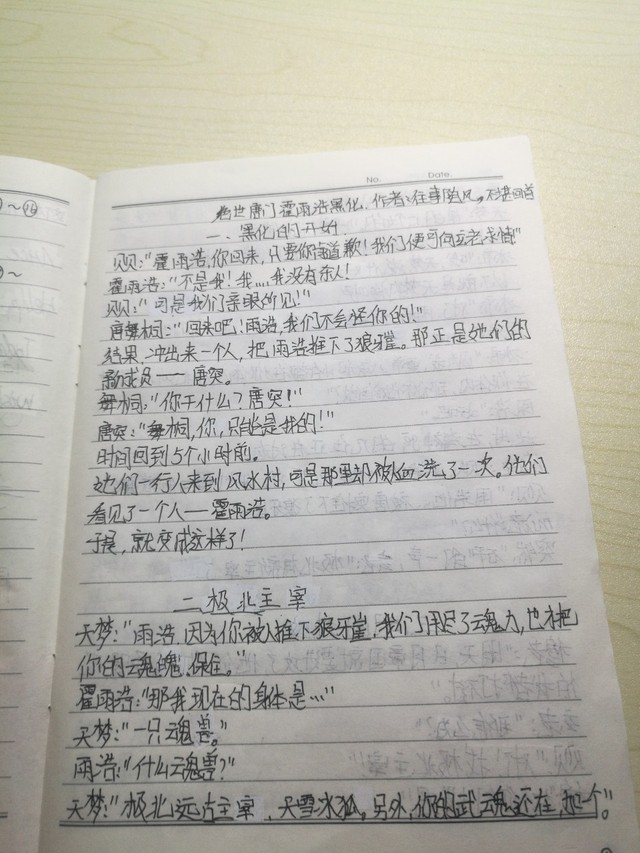 No. Date.
绝世唐门霍雨浩黑化.作者:往事随风,不堪回首
一、黑化的开始
贝贝:“霍雨浩,你回来,只要你道歉!我们便可向玄老求情”
霍雨浩:“不是我!我....我没有杀人!
贝贝:“可是我们亲眼所见!”
唐舞桐:“回来吧!雨浩,我们不会怪你的!”
结果,冲出来一个人,把雨浩推下了狼牙崖。那正是她们的
新成员——唐突。
舞桐:“你干什么?唐突!”
唐突:“舞桐,你,只能是我的!”
时间回到5个小时前。
她们一行人来到风水村,可是那里却被血洗了一次。他们
看见了一个人—霍雨浩。
于是,就变成这样了!
二、极北主宰
天梦:“雨浩,因为你被人推下狼牙崖.我们用尽了魂力,也才把
你的魂魄保住。”
霍雨浩:“那我现在的身体是...”
天梦:“一只魂兽。”
雨浩:“什么魂兽?”
天梦:“极北远古主宰、天雪冰狐,另外,你的武魂还在,加一个。”